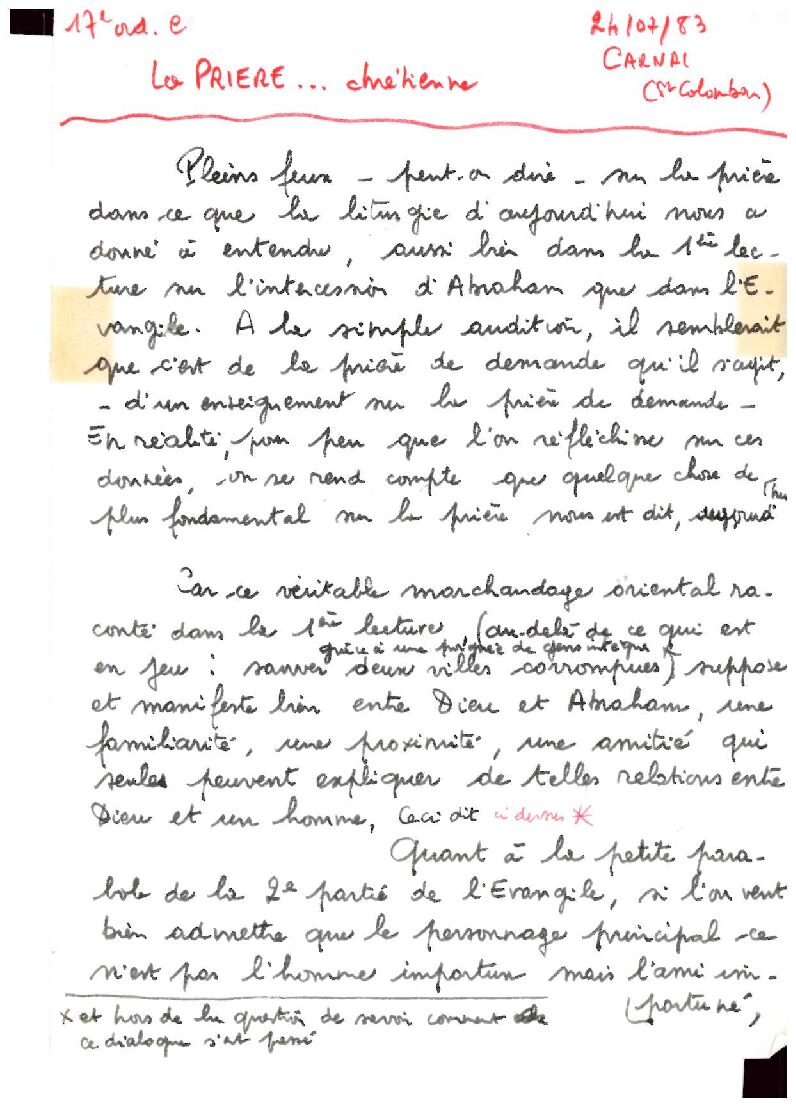 17e ord. C
24/07/83
CARNAC
(St Colomban)
La PRIERE... chrétienne
Pleins feux - peut-on dire - sur la prière
dans ce que la liturgie d'aujourd'hui nous a
donné à entendre, aussi bien dans la 1ère lec-
ture sur l'intercession d'Abraham que dans l'E-
vangile. A la simple audition, il semblerait
que c'est de la prière de demande qu'il s'agit,
- d'un enseignement sur la prière de demande -
En réalité, pour peu que l'on réfléchisse sur ces
données, on se rend compte que quelque chose de
plus fondamental sur la prière nous est dit, aujourd'hui
Car ce véritable marchandage oriental ra-
conté dans la 1ère lecture, (au-delà de ce qui est
grâce à une poignée de gens intègres
en jeu : sauver deux villes corrompues) suppose
et manifeste bien entre Dieu et Abraham, une
familiarité, une proximité, une amitié qui
seules peuvent expliquer de telles relations entre
Dieu et un homme, Ceci dit ci dessus *
Quant à la petite para-
bole de la 2e partie de l'Evangile, si l'on veut
bien admettre que le personnage principal ce
n'est pas l'homme importun mais l'ami im-
portuné,
x et hors de la question de savoir comment
ce dialogue s'est passé